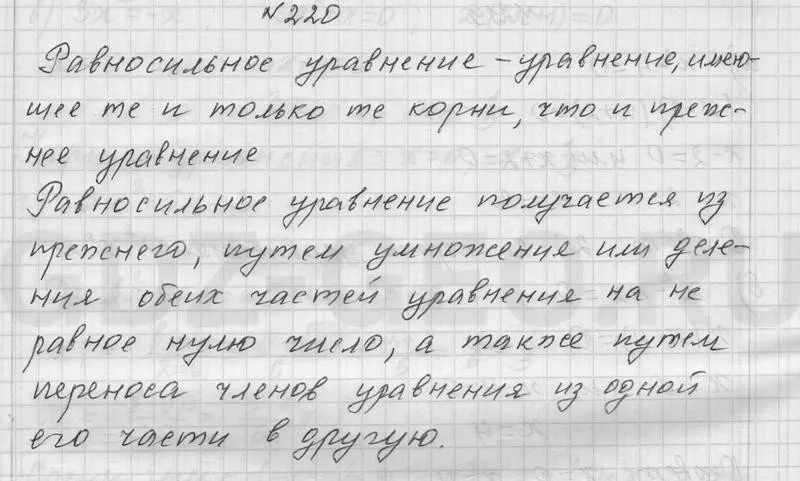 №220
Равносильное уравнение – уравнение, имею-
щее те и только те корни, что и преж-
нее уравнение
Равносильное уравнение получается из
прежнего, путем умножения или деле-
ния обеих частей уравнения на не
равное нулю число, а также путем
переноса членов уравнения из одной
его части в другую.